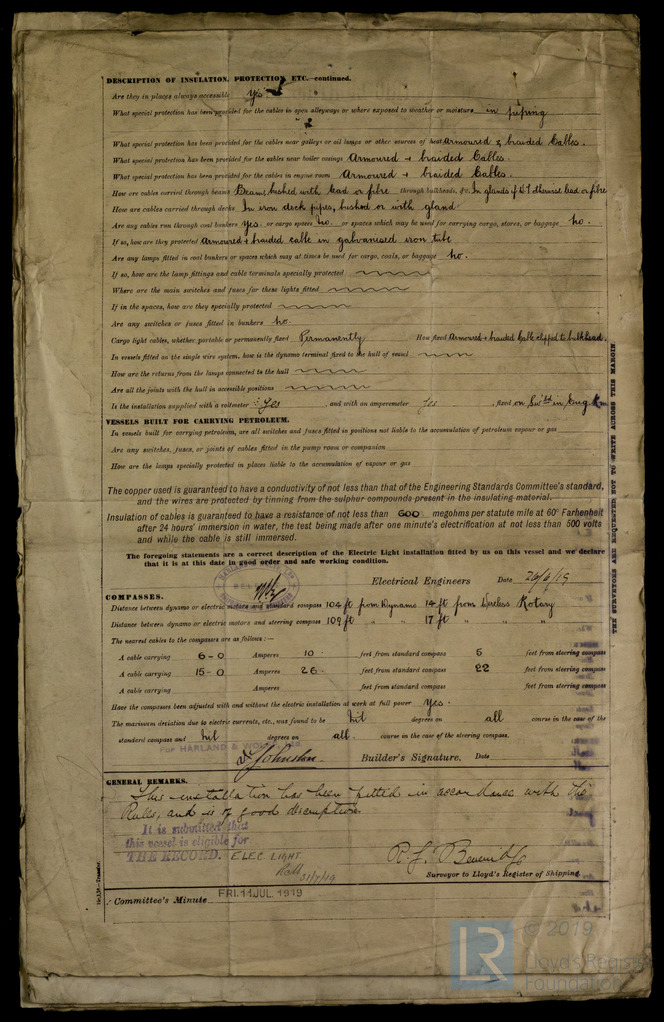 DESCRIPTION OF INSULATION, PROTECTION, ETC.—continued.
Are they in places always accessible Yes
What special protection has been provided for the cables in open alleyways or where exposed to weather or moisture in piping
What special protection has been provided for the cables near galleys or oil lamps or other sources of heat Armoured & braided Cables.
What special protection has been provided for the cables near boiler casings Armoured + braided Cables.
What special protection has been provided for the cables in engine room Armoured + braided Cables.
How are cables carried through beams Beams bushed with lead or fibre through bulkheads, &c. In glands if W.T otherwise lead or fibre
How are cables carried through decks In iron deck pipes, bushed or with gland.
Are any cables run through coal bunkers Yes. or cargo spaces no. or spaces which may be used for carrying cargo, stores, or baggage no.
If so, how are they protected Armoured & braided cable in galvanised iron tube
Are any lamps fitted in coal bunkers or spaces which may at times be used for cargo, coals, or baggage no.
If so, how are the lamp fittings and cable terminals specially protected
Where are the main switches and fuses for these lights fitted
If in the spaces, how are they specially protected
Are any switches or fuses fitted in bunkers no.
Cargo light cables, whether portable or permanently fixed Permanently How fixed Armoured & braided Cable clipped to bulkhead.
In vessels fitted on the single wire system, how is the dynamo terminal fixed to the hull of vessel
How are the returns from the lamps connected to the hull
Are all the joints with the hull in accessible positions
Is the installation supplied with a voltmeter Yes and with an amperemeter Yes , fixed on Swbd in Eng Rm
VESSELS BUILT FOR CARRYING PETROLEUM.
In vessels built for carrying petroleum, are all switches and fuses fitted in positions not liable to the accumulation of petroleum vapour or gas
Are any switches, fuses, or joints of cables fitted in the pump room or companion
How are the lamps specially protected in places liable to the accumulation of vapour or gas
The copper used is guaranteed to have a conductivity of not less than that of the Engineering Standards Committee's standard,
and the wires are protected by tinning from the sulphur compounds present in the insulating material.
Insulation of cables is guaranteed to have a resistance of not less than 600 megohms per statute mile at 60° Farhenheit
after 24 hours' immersion in water, the test being made after one minute's electrification at not less than 500 volts
and while the cable is still immersed.
The foregoing statements are a correct description of the Electric Light installation fitted by us on this vessel and we declare
that it is at this date in good order and safe working condition.
Electrical Engineers Date 26/6/19
COMPASSES.
Distance between dynamo or electric motors and standard compass 104 ft from Dynamo 14 ft from Wireless Rotary
Distance between dynamo or electric motors and steering compass 109 ft " " 17 ft " " "
The nearest cables to the compasses are as follows:—
A cable carrying 6-0 Amperes 10 feet from standard compass 5 feet from steering compass
A cable carrying 15-0 Amperes 26 feet from standard compass 22 feet from steering compass
A cable carrying Amperes feet from standard compass feet from steering compass
Have the compasses been adjusted with and without the electric installation at work at full power Yes.
The maximum deviation due to electric currents, etc., was found to be nil degrees on all course in the case of the
standard compass and nil degrees on all. course in the case of the steering compass.
For HARLAND & WOLFF
Johnston Builder's Signature. Date
GENERAL REMARKS.
This installation has been fitted in accordance with the
Rules, and is of good description.
It is submitted that
this vessel is eligible for
THE RECORD. ELEC. LIGHT
31/7/19
Surveyor to Lloyd's Register of Shipping.
Committee's Minute FRI. 11 JUL. 1919
THE SURVEYORS ARE REQUESTED NOT TO WRITE ACROSS THIS MARGIN
LR
© 2019
Lloyd's Register
Foundation